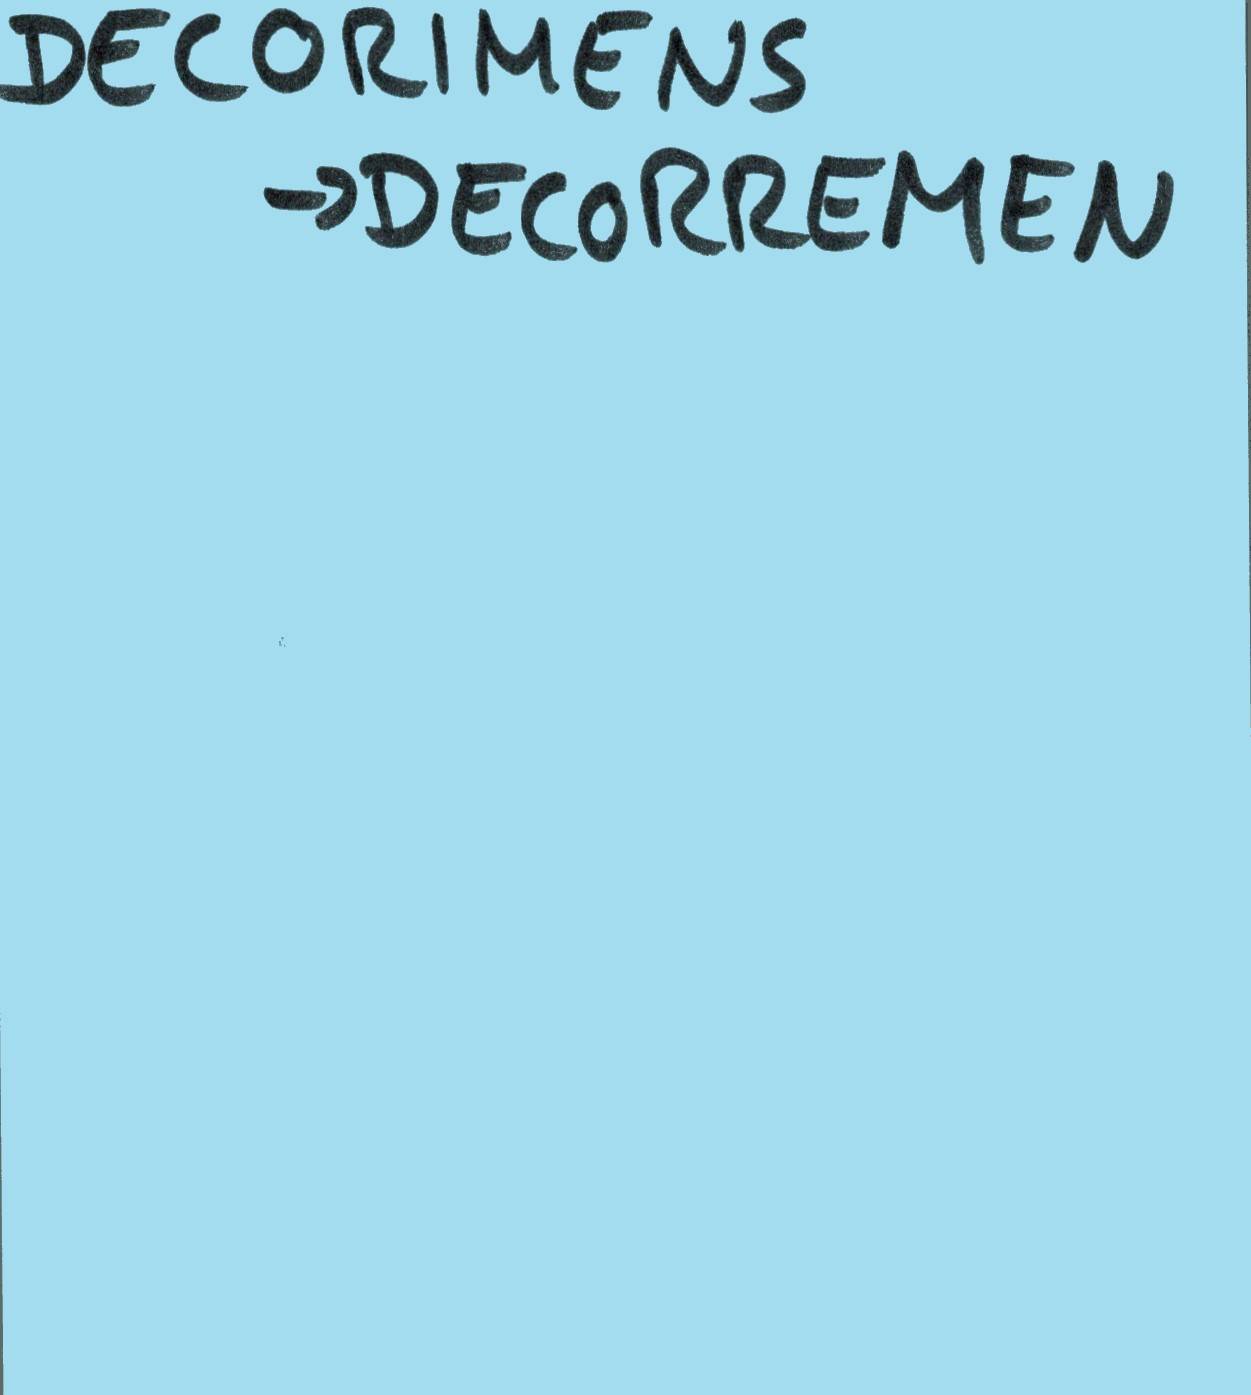 DECORIMENS
→DECORREMEN